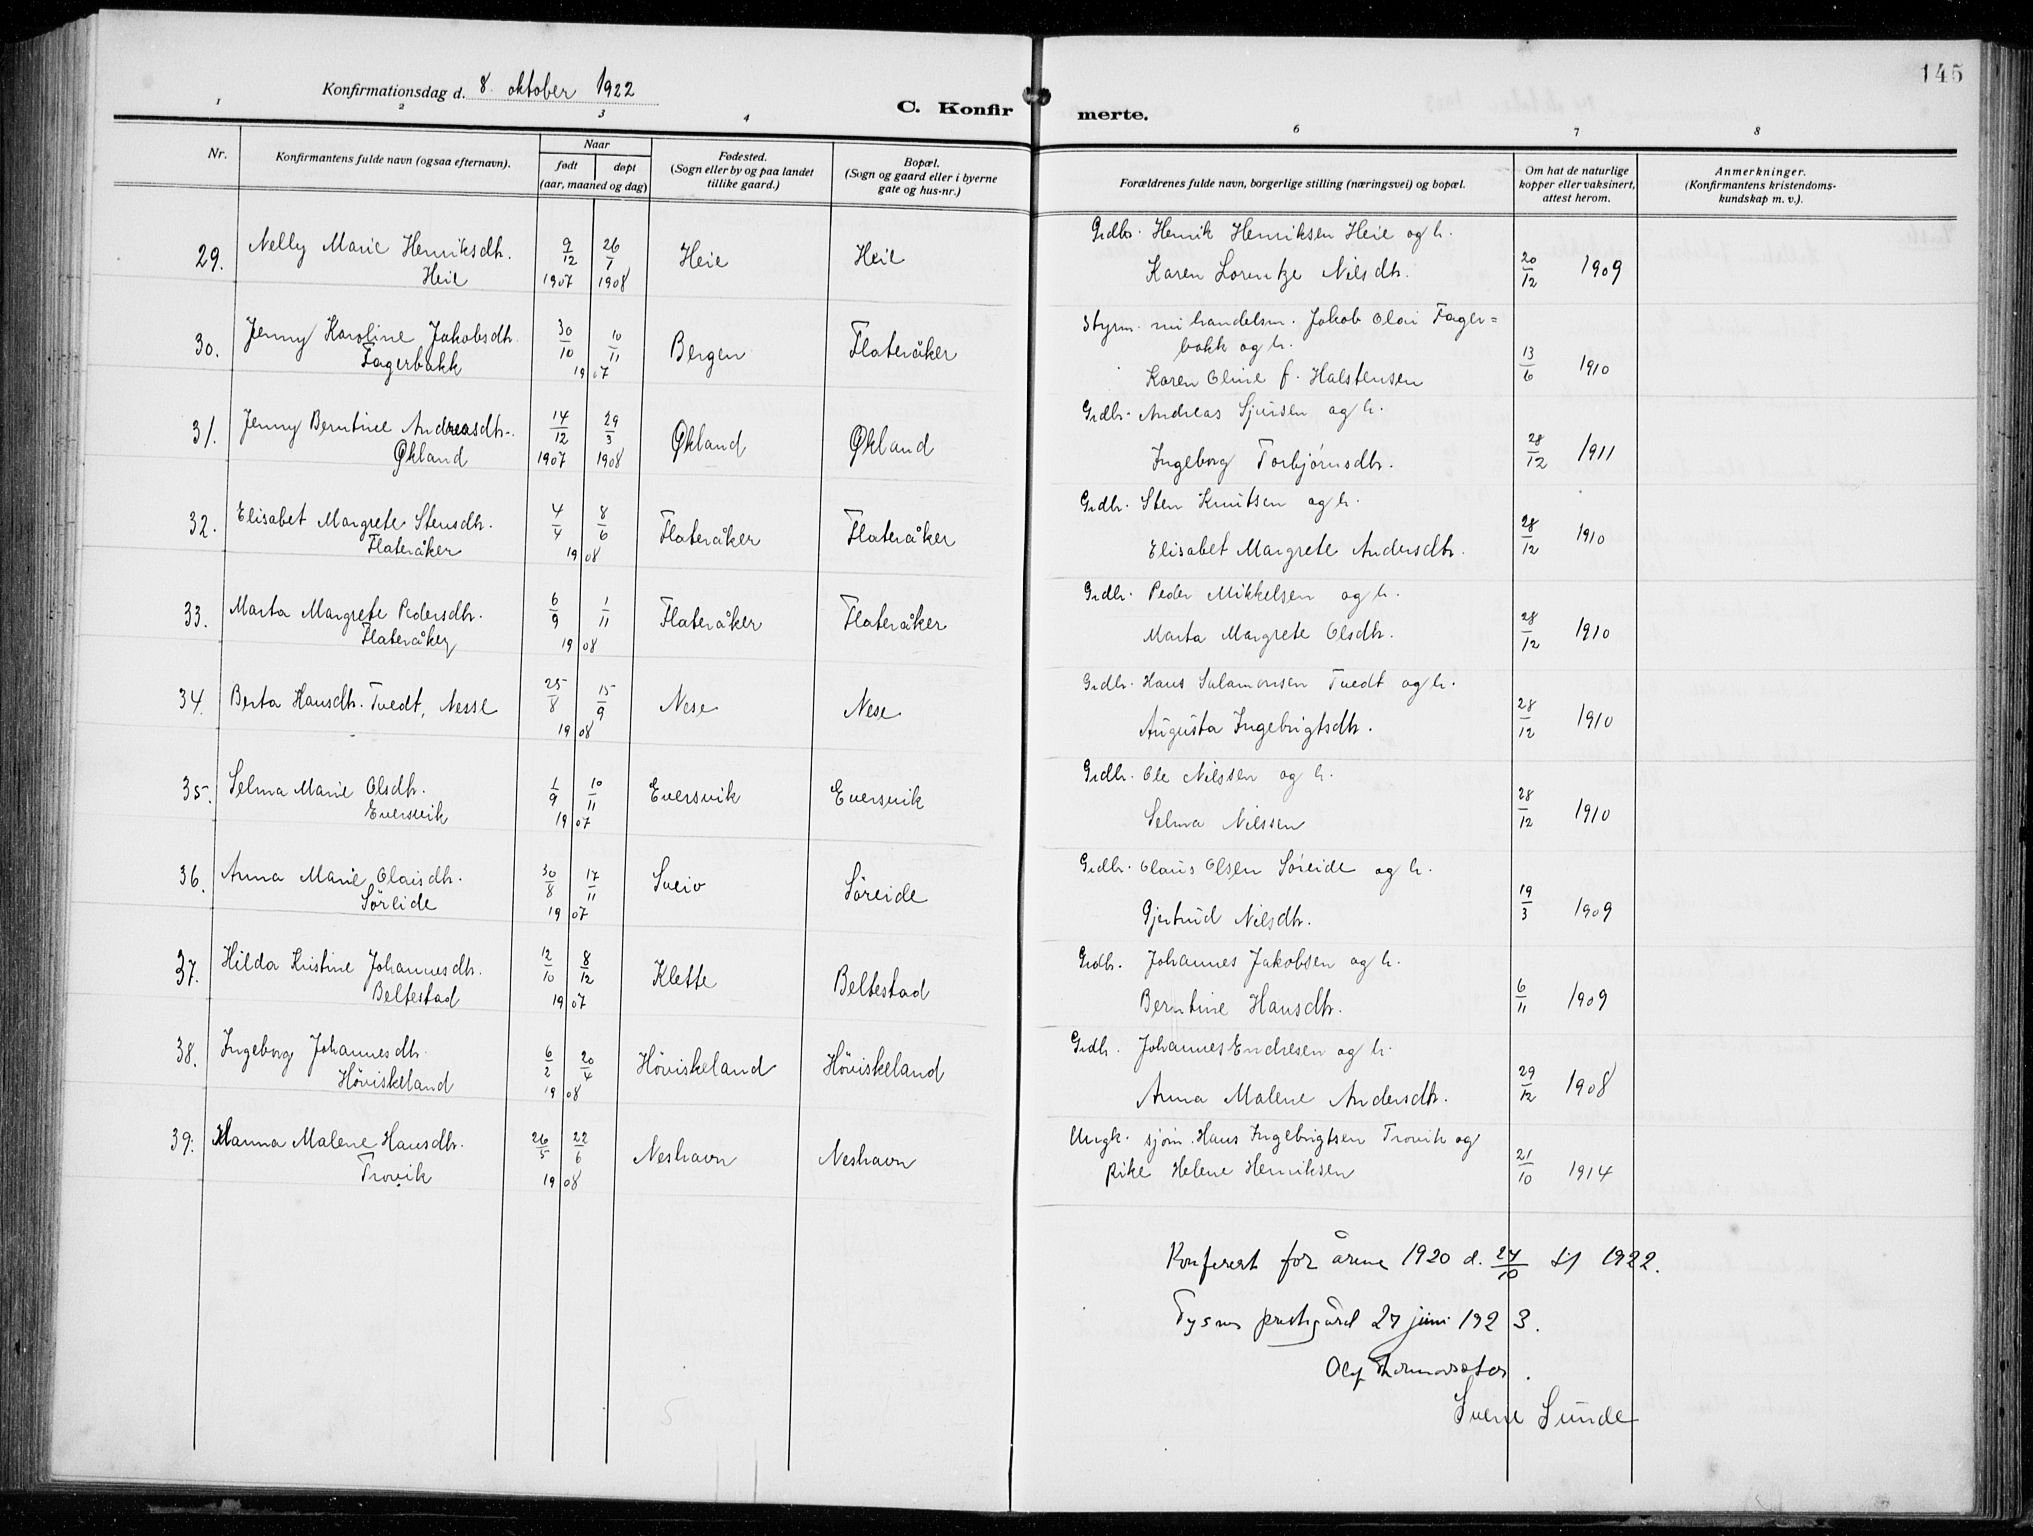 145
Konfirmationsdag d. 8. oktober 1922
C. Konfirmerte.
1 2 3 4 6 7 8
Nr.
Konfirmantens fulde navn (ogsaa efternavn).
Naar
født døpt
(aar, maaned og dag)
Fødested.
(Sogn eller by og paa landet
tillike gaard.)
Bopæl.
(Sogn og gaard eller i byerne
gate og hus-nr.)
Forældrenes fulde navn, borgerlige stilling (næringsvei) og bopæl.
Om hat de naturlige
kopper eller vaksinert,
attest herom.
Anmerkninger.
(Konfirmantens kristendoms-
kundskap m. v.).
29. Nelly Marie Henriksdtr. 9/12 26/7 Heie Heie Grdbr. Henrik Henriksen Heie og h.
Heie 1907 1908 Karen Lorentze Nilsdtr. 20/12 1909
30. Jenny Karoline Jakobsdtr. 30/10 10/11 Bergen Flateråker Styrm. nu handelsm. Jakob Olai Fager=
Fagerbakk 1907 bakk og h.
Karen Oline f. Halstensen 13/6 1910
31. Jenny Berntine Andreasdtr. 14/12 29/3 Økland Økland Grdbr. Andreas Sjursen og h.
Økland 1907 1908 Ingeborg Torbjørnsdtr. 28/12 1911
32. Elisabet Margrete Stensdtr. 4/4 8/6 Flateråker Flateråker Grdbr. Sten Knutsen og h.
Flateråker 1908 Elisabet Margrete Andersdtr. 28/12 1910
33. Marta Margrete Pedersdtr. 6/9 1/11 Flateråker Flateråker Grdbr. Peder Mikkelsen og h.
Flateråker 1908 Marta Margrete Olsdtr. 28/12 1910
34. Berta Hansdtr. Tvedt, Nesse 25/8 15/9 Nese Nese Grdbr. Hans Salamonsen Tvedt og h.
1908 Augusta Ingebrigtsdtr. 28/12 1910
35. Selma Marie Olsdtr. 1/9 10/11 Eversvik Eversvik Grdbr. Ole Nilssen og h.
Eversvik 1907 Selma Nilssen 28/12 1910
36. Anna Marie Olaisdtr. 30/8 17/11 Sveio Søreide Grdbr. Olaus Olsen Søreide og h.
Søreide 1907 Gjertrud Nilsdtr. 19/3 1909
37. Hilda Kristine Johannesdtr. 12/10 8/12 Klette Beltestad Grdbr. Johannes Jakobsen og h.
Beltestad 1907 Berntine Hansdtr. 6/11 1909
38. Ingeborg Johannesdtr. 6/2 20/4 Høviskeland Høviskeland Grdbr. Johannes Endresen og h.
Høviskeland 1908 Anna Malene Andersdtr. 29/12 1908
39. Hanna Malene Hansdtr. 26/5 22/6 Neshavn Neshavn Ungk. sjøm. Hans Ingebrigtsen Trovik og
Trovik 1908 pike Helene Henriksen 21/10 1914
Konferert for årene 1920 d. 27/10 1922.
Tysnes prestegård 27 juni 1923.
Sunde